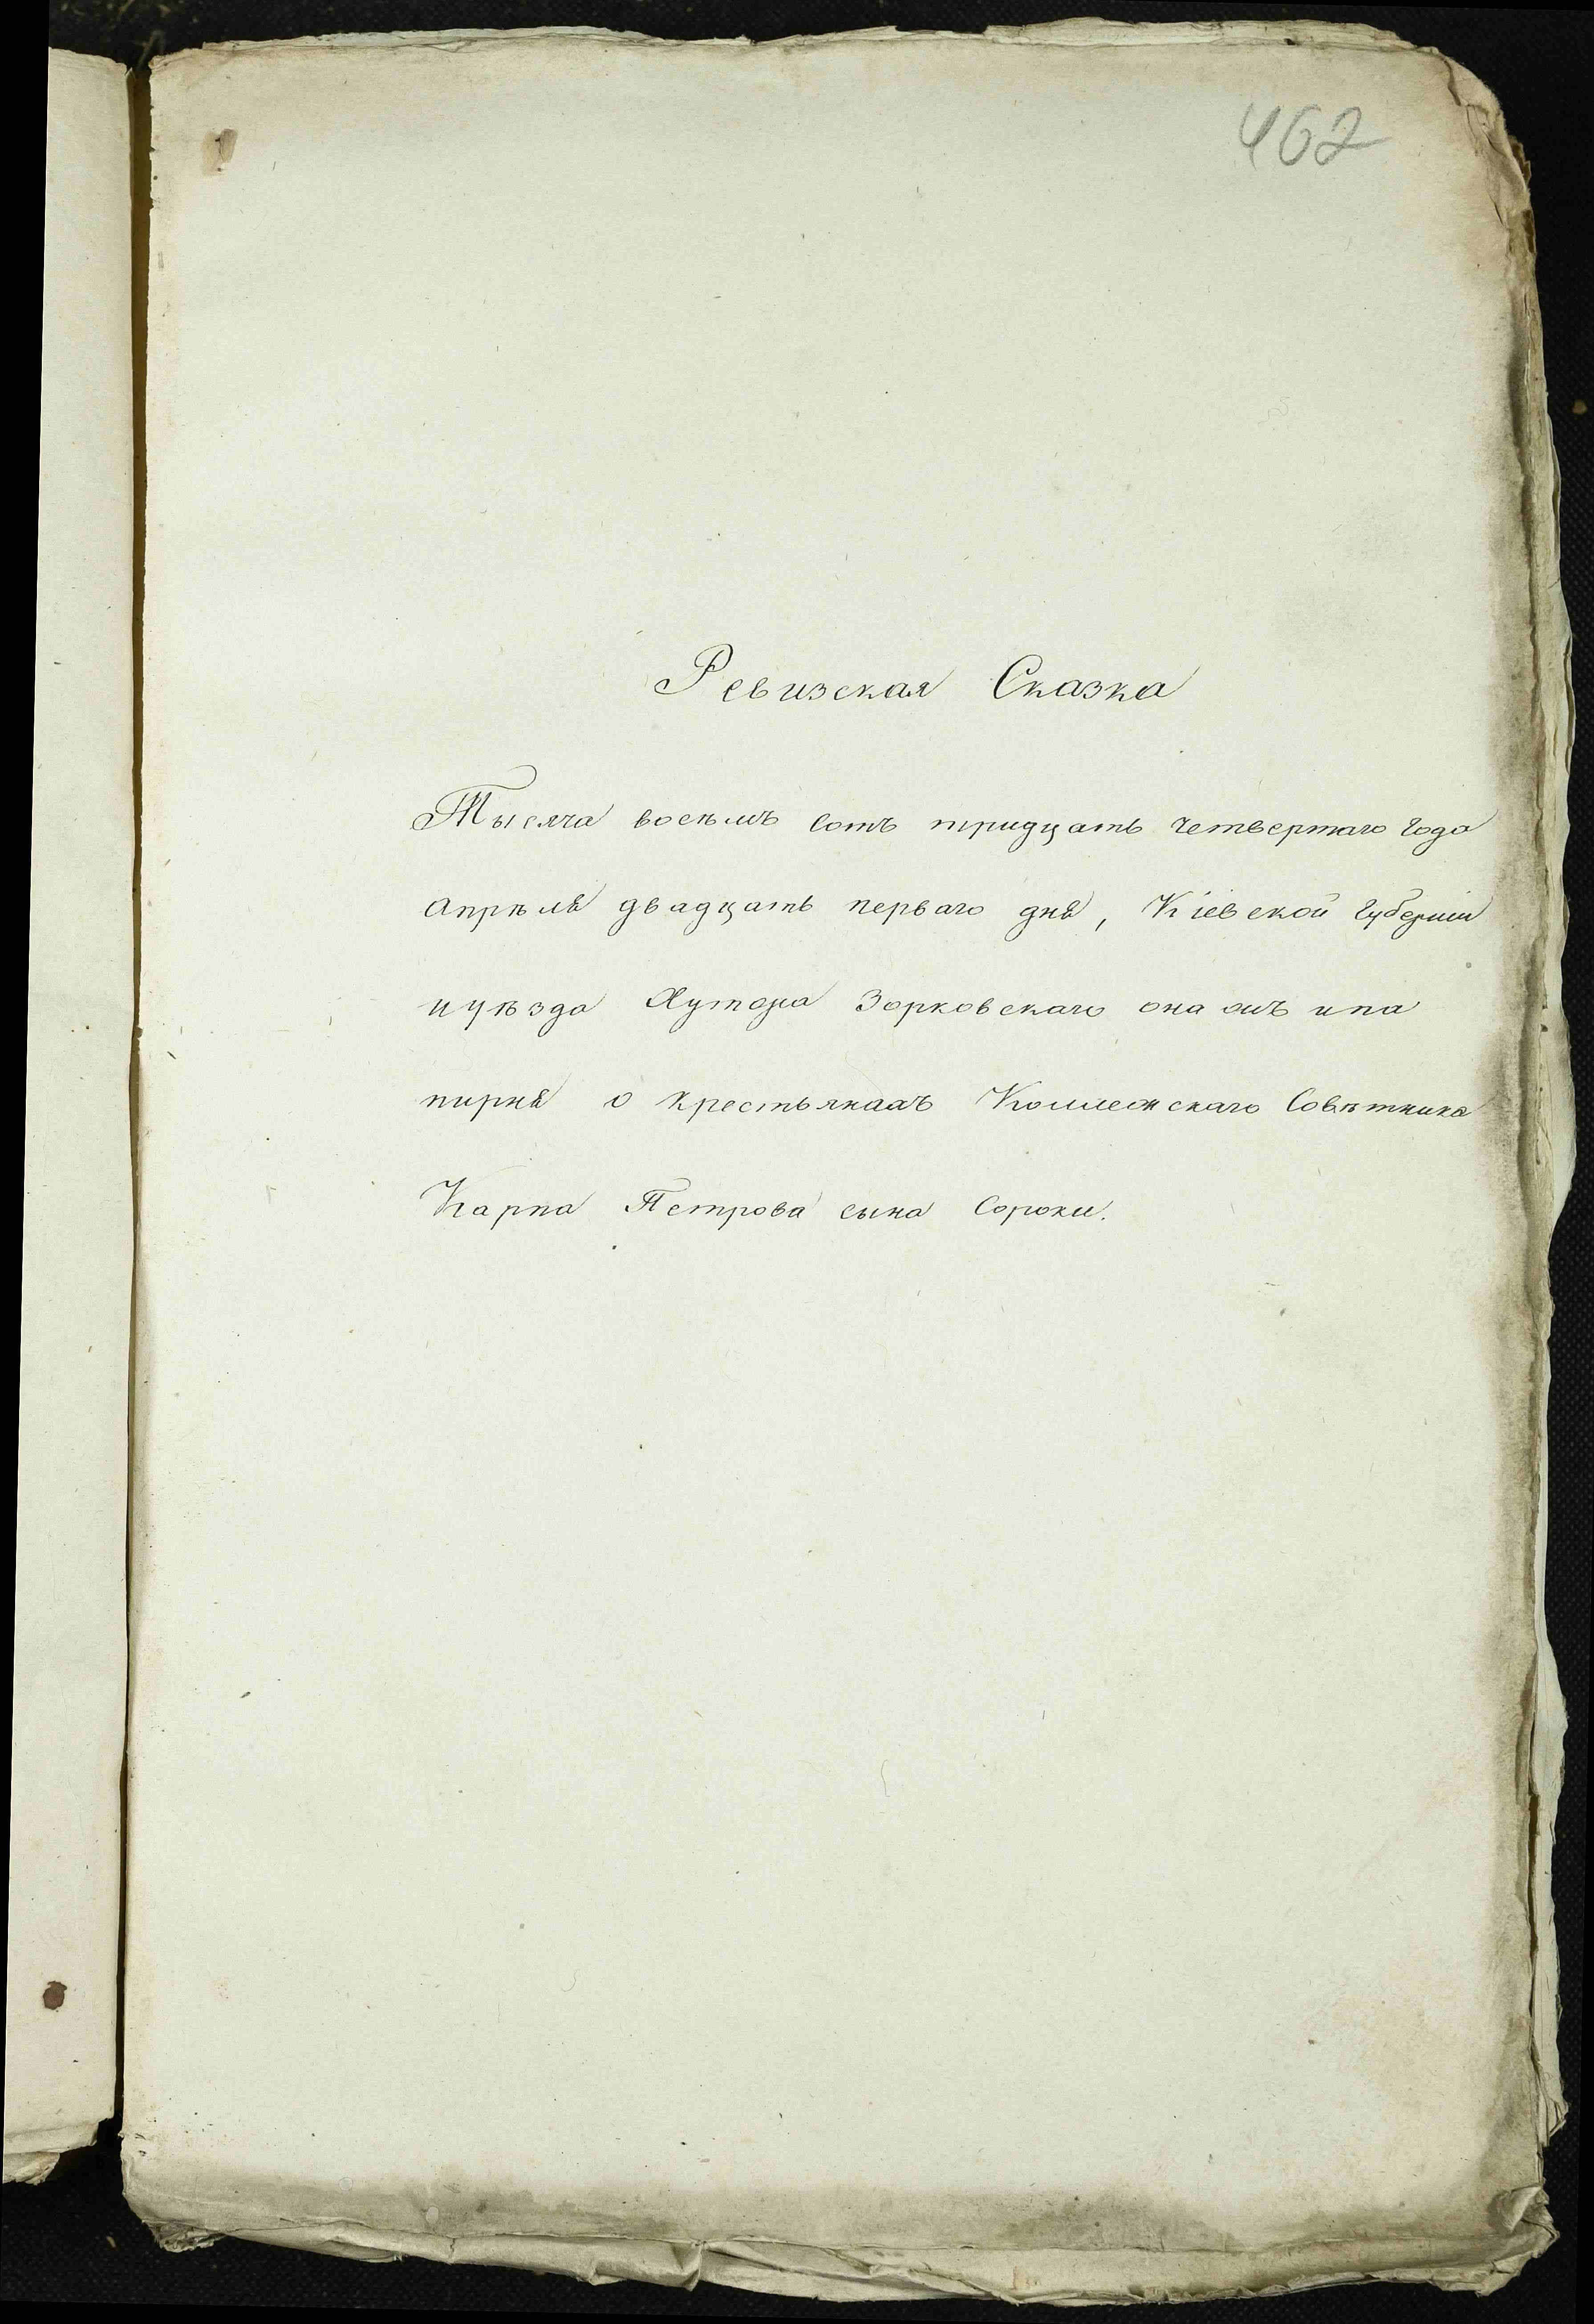 462
Ревизская Сказка
Тысяча восемъ сотъ тридцать четвертаго года
апрѣля двадцать перваго дня, Кіевской губерніи
иуѣзда Хутора Зорковскаго она онъ ипа
пирня о крестьянахъ Коллежскаго Совѣтника
Карпа Петрова сына Сороки.